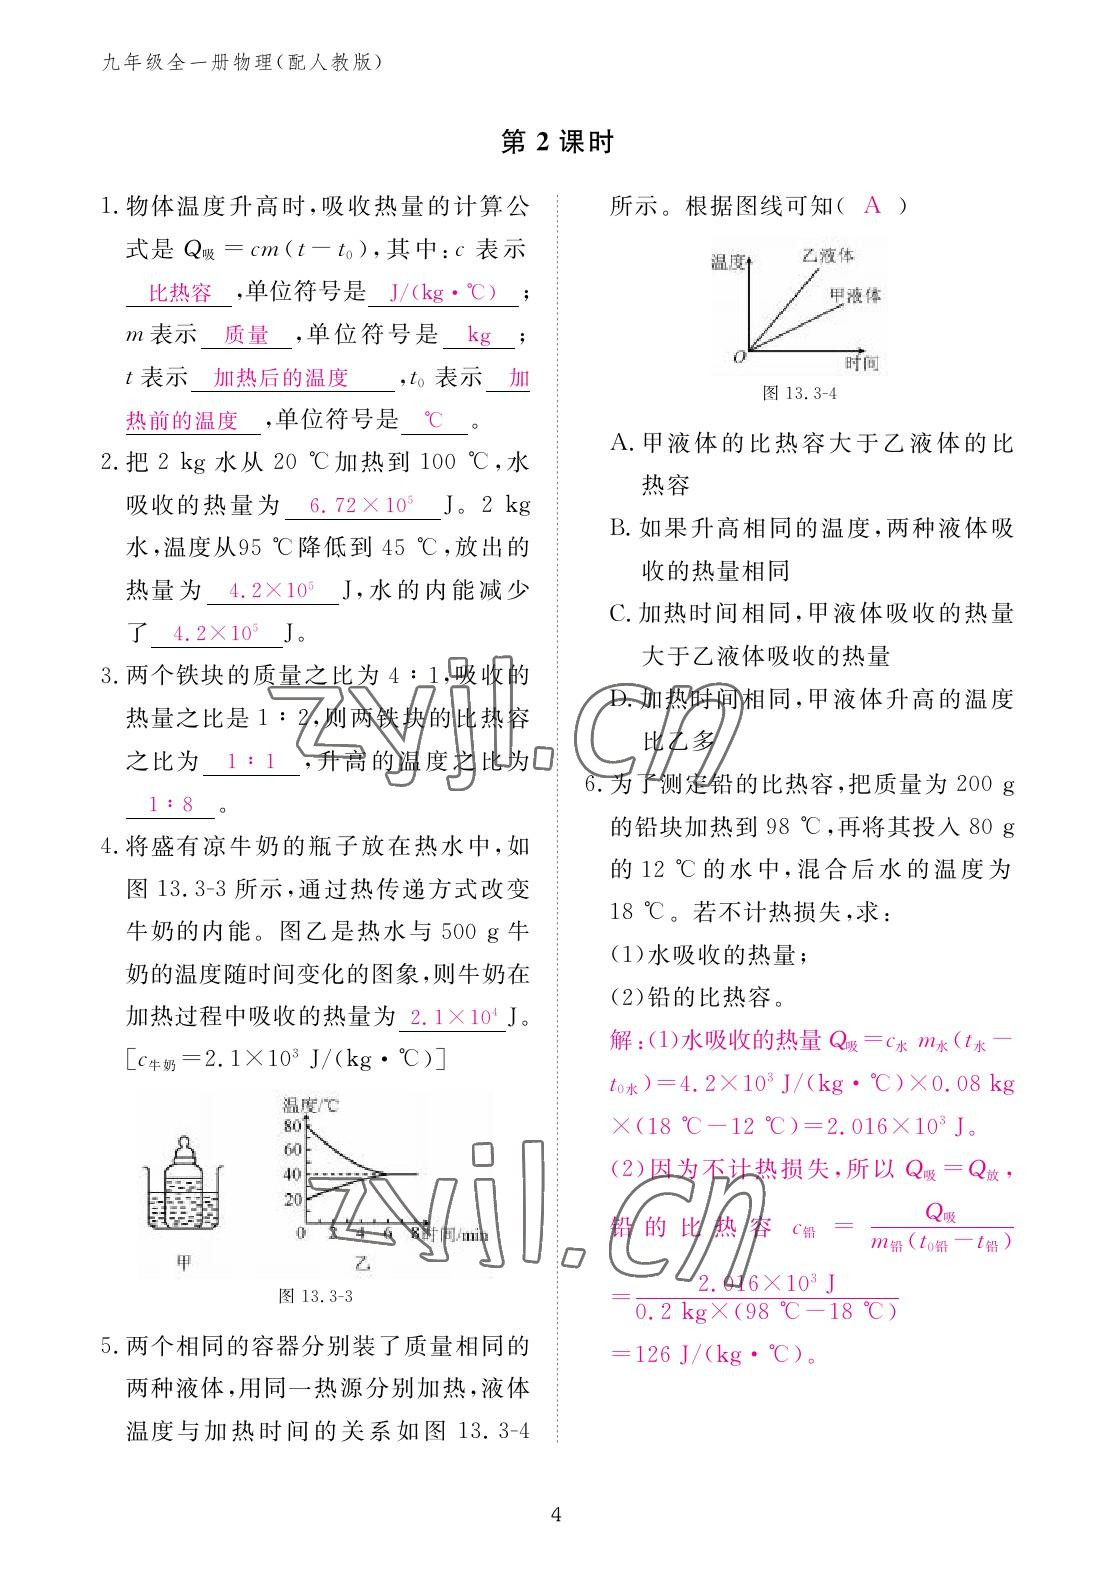 九年级全一册物理(配人教版)
第 2 课时
1. 物体温度升高时,吸收热量的计算公
式是 Q吸=cm(t-t₀),其中:c 表示
比热容,单位符号是 J/(kg·℃);
m 表示 质量,单位符号是 kg;
t 表示 加热后的温度,t₀ 表示 加
热前的温度,单位符号是 ℃。
2. 把 2 kg 水从 20 ℃加热到 100 ℃,水
吸收的热量为 6.72×10⁵ J。2 kg
水,温度从95 ℃降低到 45 ℃,放出的
热量为 4.2×10⁵ J,水的内能减少
了 4.2×10⁵ J。
3. 两个铁块的质量之比为 4∶1,吸收的
热量之比是 1∶2,则两铁块的比热容
之比为 1∶1,升高的温度之比为
1∶8。
4. 将盛有凉牛奶的瓶子放在热水中,如
图 13.3-3 所示,通过热传递方式改变
牛奶的内能。图乙是热水与 500 g 牛
奶的温度随时间变化的图象,则牛奶在
加热过程中吸收的热量为 2.1×10⁴ J。
[c牛奶=2.1×10³ J/(kg·℃)]
温度/℃
80
60
40
20
0 2 4 6 8 时间/min
甲 乙
图 13.3-3
5. 两个相同的容器分别装了质量相同的
两种液体,用同一热源分别加热,液体
温度与加热时间的关系如图 13.3-4
所示。根据图线可知( A )
温度 乙液体
甲液体
O 时间
图 13.3-4
A. 甲液体的比热容大于乙液体的比
热容
B. 如果升高相同的温度,两种液体吸
收的热量相同
C. 加热时间相同,甲液体吸收的热量
大于乙液体吸收的热量
D. 加热时间相同,甲液体升高的温度
比乙多
6. 为了测定铅的比热容,把质量为 200 g
的铅块加热到 98 ℃,再将其投入 80 g
的 12 ℃的水中,混合后水的温度为
18 ℃。若不计热损失,求:
(1)水吸收的热量;
(2)铅的比热容。
解:(1)水吸收的热量 Q吸=c水 m水(t水-
t₀水)=4.2×10³ J/(kg·℃)×0.08 kg
×(18 ℃-12 ℃)=2.016×10³ J。
(2)因为不计热损失,所以 Q吸=Q放,
铅的比热容 c铅 = Q吸/m铅(t₀铅-t铅)
=2.016×10³ J/0.2 kg×(98 ℃-18 ℃)
=126 J/(kg·℃)。
zyjl.cn
zyjl.cn
4